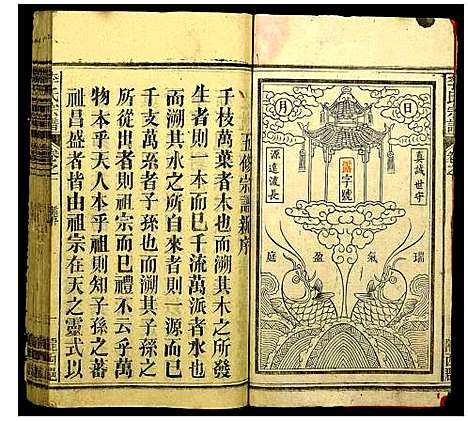 李氏宗譜
卷之一
日
月
真誠世守
字號
源遠流長
瑞氣盈庭
五修宗譜新序
千枝萬葉者木也而溯其木之所發
生者則一本而已千流萬派者水也
而溯其水之所自來者則一源而已
千支萬孫者子孫也而溯其子孫之
所從出者則祖宗而已禮不云乎萬
物本乎天人本乎祖則知子孫之蕃
祉昌盛者皆由祖宗在天之靈式以
李氏宗譜
卷之一